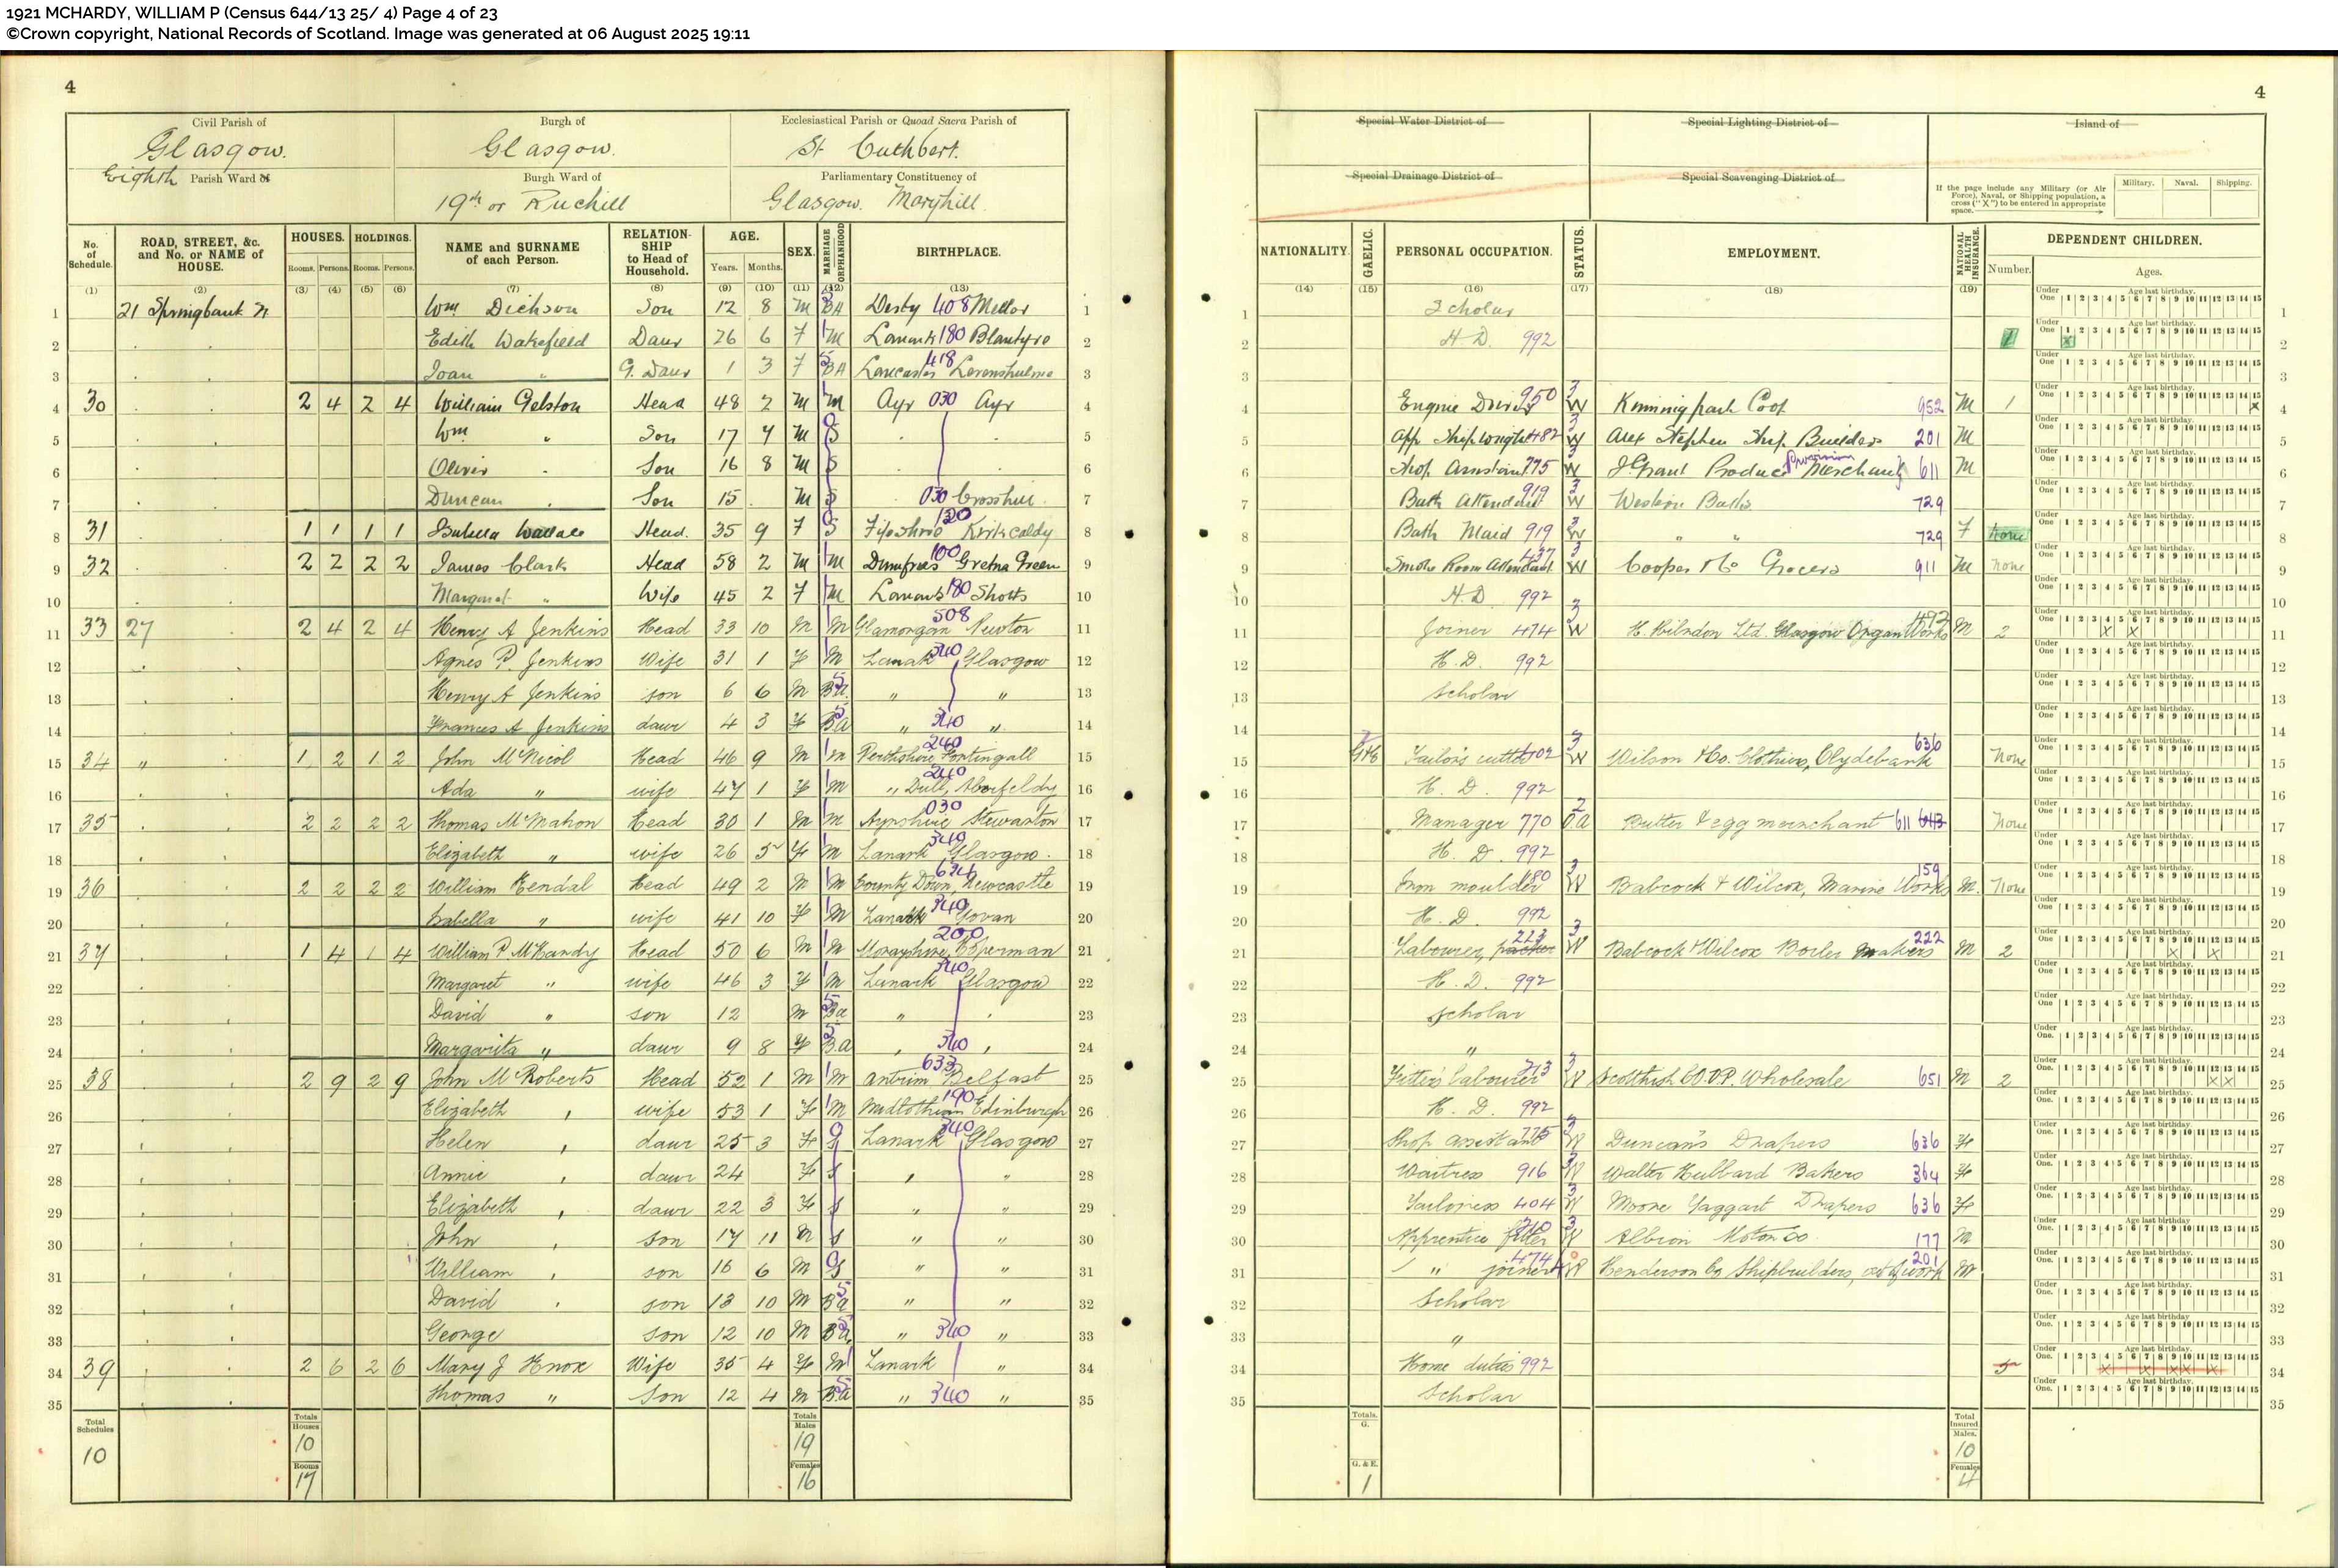 1921 MCHARDY, WILLIAM P (Census 644/13 25/ 4) Page 4 of 23
©Crown copyright, National Records of Scotland. Image was generated at 06 August 2025 19:11
4
Civil Parish of Glasgow.
Burgh of Glasgow.
Ecclesiastical Parish or Quoad Sacra Parish of St Cuthbert.
Eighth Parish Ward of
Burgh Ward of 19th or Ruchill
Parliamentary Constituency of Glasgow. Maryhill.
No. of Schedule. (1)
ROAD, STREET, &c. and No. or NAME of HOUSE. (2)
HOUSES. Rooms. (3) Persons. (4)
HOLDINGS. Rooms. (5) Persons. (6)
NAME and SURNAME of each Person. (7)
RELATIONSHIP to Head of Household. (8)
AGE. Years. (9) Months. (10)
SEX. (11)
MARRIAGE ORPHANHOOD (12)
BIRTHPLACE. (13)
1 21 Springbank Wm Dickson Son 12 8 M BA Derby 408 Mellor 1
2 Edith Wakefield Daur 26 6 F M Lanark 180 Blantyre 2
3 Joan " G. Daur 1 3 F BA Lancaster 418 Levenshulme 3
4 30 2 4 2 4 William Gelston Head 48 2 M M Ayr 030 Ayr 4
5 Wm " Son 17 4 M S 5
6 Oliver Son 16 8 M S 6
7 Duncan Son 15 M S 030 Crosshill 7
8 31 1 1 1 1 Isabella Wallace Head. 35 9 F S Fifeshire 120 Kirkcaldy 8
9 32 2 2 2 2 James Clark Head 58 2 M M Dumfries 100 Gretna Green 9
10 Margaret " Wife 45 2 F M Lanark 180 Shotts 10
11 33 27 2 4 2 4 Henry A Jenkins Head 33 10 M M Glamorgan 508 Newton 11
12 Agnes P. Jenkins Wife 31 1 F M Lanark 340 Glasgow 12
13 Henry A Jenkins son 6 6 M Ba " " 13
14 Frances A Jenkins daur 4 3 F Ba " 340 " 14
15 34 " 1 2 1 2 John McNicol Head 46 9 M M Perthshire 240 Fortingall 15
16 Ada " wife 47 1 F M " Dull, 240 Aberfeldy 16
17 35 2 2 2 2 Thomas McMahon Head 30 1 M M Ayrshire 030 Stewarton 17
18 Elizabeth " wife 26 5 F M Lanark 340 Glasgow. 18
19 36 2 2 2 2 William Kendal Head 49 2 M M County Down, Newcastle 19
20 Isabella " wife 41 10 F M Lanark 340 Govan 20
21 37 1 4 1 4 William P McHardy Head 50 6 M M Morayshire, 200 21
22 Margaret " wife 46 3 F M Lanark 340 Glasgow 22
23 David " son 12 M Ba " 23
24 Margarita " daur 9 8 F B.a 340 24
25 38 2 9 2 9 John McRoberts Head 52 1 M M Antrim 633 Belfast 25
26 Elizabeth wife 53 1 F M Midlothian 190 Edinburgh 26
27 Helen daur 25 3 F S Lanark 340 Glasgow 27
28 Annie daur 24 F S " 28
29 Elizabeth daur 22 3 F S " " 29
30 John son 17 11 M S " " 30
31 William son 16 6 M S " " 31
32 David son 13 10 M Ba " " 32
33 George son 12 10 M Ba " 340 " 33
34 39 2 6 2 6 Mary J Knox Wife 35 4 F M Lanark " 34
35 Thomas " Son 12 4 M Ba " 340 " 35
Total Schedules 10
Totals Houses 10 Rooms 17
Totals Males 19 Females 16
4
Special Water District of
Special Lighting District of
Island of
Special Drainage District of
Special Scavenging District of
If the page include any Military (or Air Force), Naval, or Shipping population, a cross ("X") to be entered in appropriate space.
Military. Naval. Shipping.
NATIONALITY (14)
GAELIC. (15)
PERSONAL OCCUPATION. (16)
STATUS. (17)
EMPLOYMENT. (18)
NATIONAL HEALTH INSURANCE. (19)
DEPENDENT CHILDREN.
Number. Ages.
Under One 1 2 3 4 5 6 7 8 9 10 11 12 13 14 15 Age last birthday.
1 Scholar 1
2 H.D. 992 1 x 2
3 3
4 Engine Driver 950 W Kinning Park Coop 952 M 1 x 4
5 App Shipwright 482 W Alex Stephen Ship Builders 201 M 5
6 Shop Assistant 775 W J Grant Produce Provision Merchant 611 M 6
7 Bath Attendant 919 W Western Baths 729 7
8 Bath Maid 919 W " " 729 F None 8
9 Smoke Room Attendant 437 W Cooper & Co Grocers 911 M None 9
10 H.D. 992 10
11 Joiner 474 W Ltd. Glasgow Organ Works 493 M 2 x x 11
12 H.D. 992 12
13 Scholar 13
14 14
15 G&E Tailor's cutter 402 W Wilson & Co. Clothiers, Clydebank 636 None 15
16 H. D. 992 16
17 Manager 770 O.A Butter & egg merchant 611 None 17
18 H. D. 992 18
19 Iron moulder 180 W Babcock & Wilcox, Marine Works 159 M. None 19
20 H. D. 992 20
21 Labourer, packer 223 W Babcock & Wilcox Boiler Makers 222 M 2 x x 21
22 H. D. 992 22
23 Scholar 23
24 " 24
25 Fitter's labourer 213 W Scottish CO.OP. Wholesale 651 M 2 x x 25
26 H. D. 992 26
27 Shop assistant 775 W Duncan's Drapers 636 F 27
28 Waitress 916 W Walter Hubbard Bakers 364 F 28
29 Tailoress 404 W Moore Taggart Drapers 636 F 29
30 Apprentice fitter 210 W Albion Motor Co 177 M 30
31 " joiner 474 W Henderson Co Shipbuilders, out of work 201 M 31
32 Scholar 32
33 " 33
34 Home duties 992 5 x x x x x 34
35 Scholar 35
Totals. G. G. & E. 1
Total Insured Males. 10 Females 4